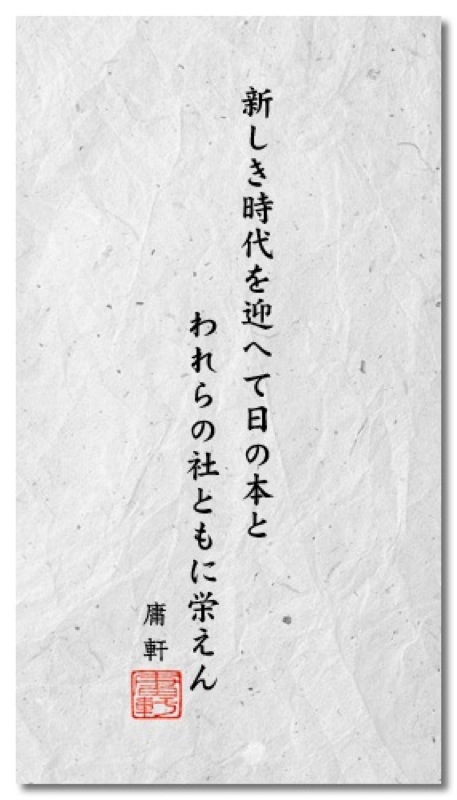 新しき時代を迎へて日の本と
われらの社ともに栄えん
庸軒
庸軒